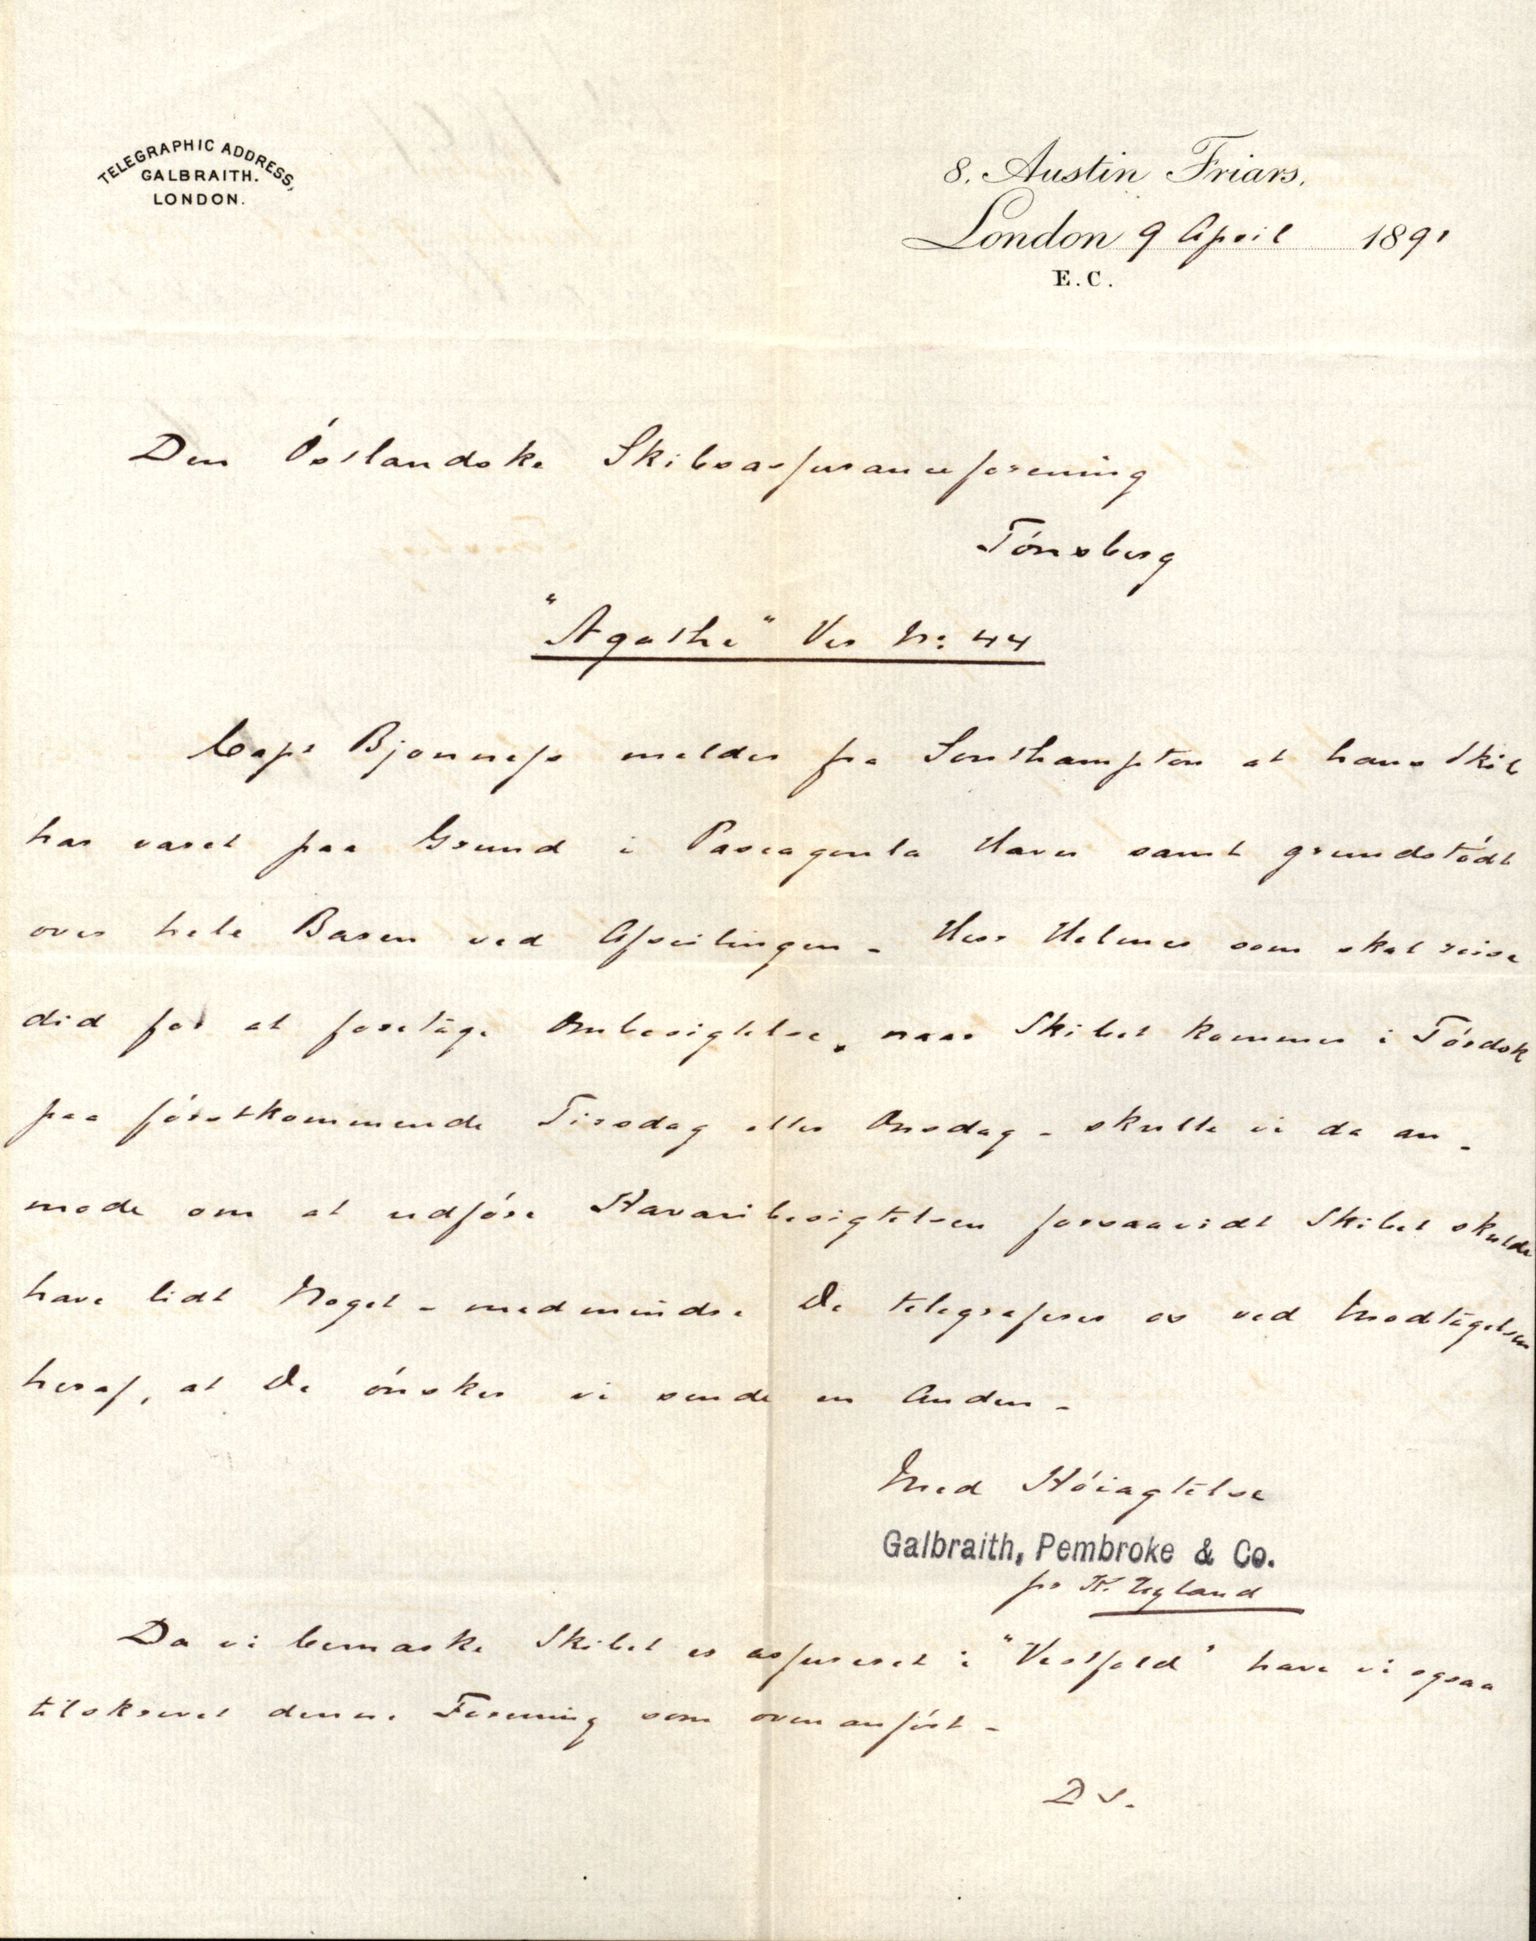 TELEGRAPHIC ADDRESS,
GALBRAITH.
LONDON.
8, Austin Friars,
London 9 April 1891
E.C.
Den Östlandske Skibsassuranceforening
Tönsberg
"Agathe" Ver No: 44
Capt Bjonness melder fra Southampton at hans Skib
har været paa Grund i Pascagoula Havn samt grundstödt
over hele Baren ved Afseilingen - Herr Helmer som skal reise
did for at foretage Ombesigtelse, naar Skibet kommer i Tördok
paa förstkommende Tirsdag eller Onsdag - skulle vi da an-
mode om at udföre Havaribesigtelsen forsaavidt Skibet skulde
have lidt Noget - medmindre De telegraferer os ved Modtagelsen
heraf, at De önsker vi sende en Anden -
Med Höiagtelse
Galbraith, Pembroke & Co.
pr K. Ugland
Da vi bemærke Skibet er assureret i "Vestfold" have vi ogsaa
tilskrevet denne Forening som ovenanfört -
D S.